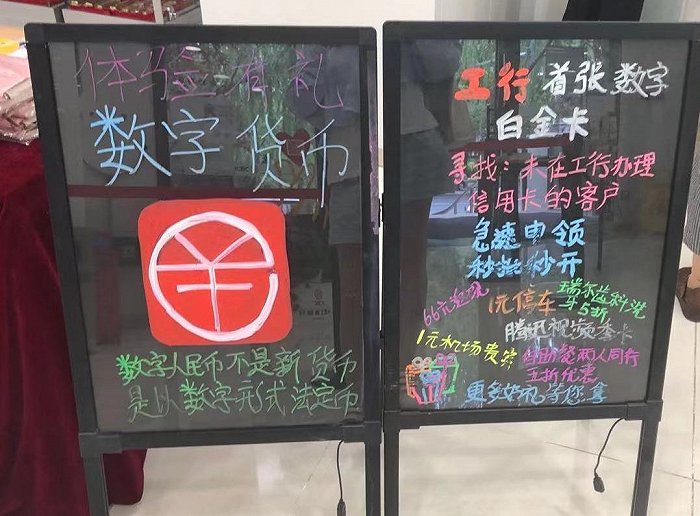 体验有礼
数字货币
数字人民币不是新货币
是以数字形式法定币
工行首张数字
白金卡
寻找:未在工行办理
信用卡的客户
急速申领
秒批秒开
66元
1元停车
瑞尔齿科洗
牙5折
腾讯视频季卡
1元机场贵宾
两人同行
五折优惠
更多好礼等您拿